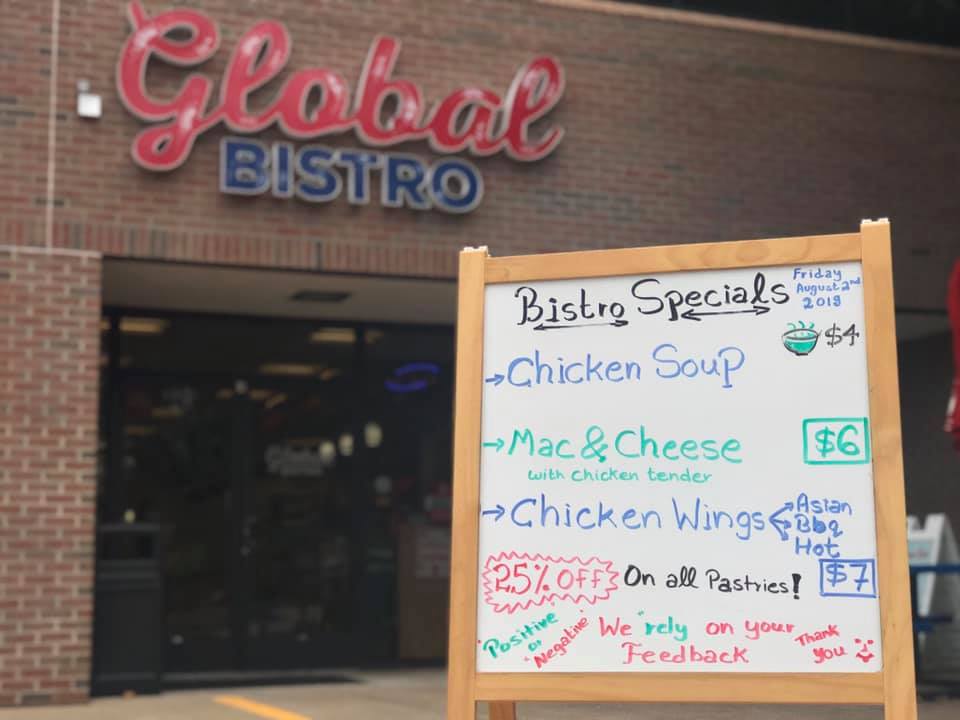 Global
BISTRO
Bistro Specials
Friday
August 2nd
2019
$4
→Chicken Soup
→Mac & Cheese
$6
with chicken tender
→Chicken Wings
Asian
Bbq
Hot
$7
25% OFF On all Pastries!
"Positive
or
Negative"
We rely on your
Feedback
Thank
you